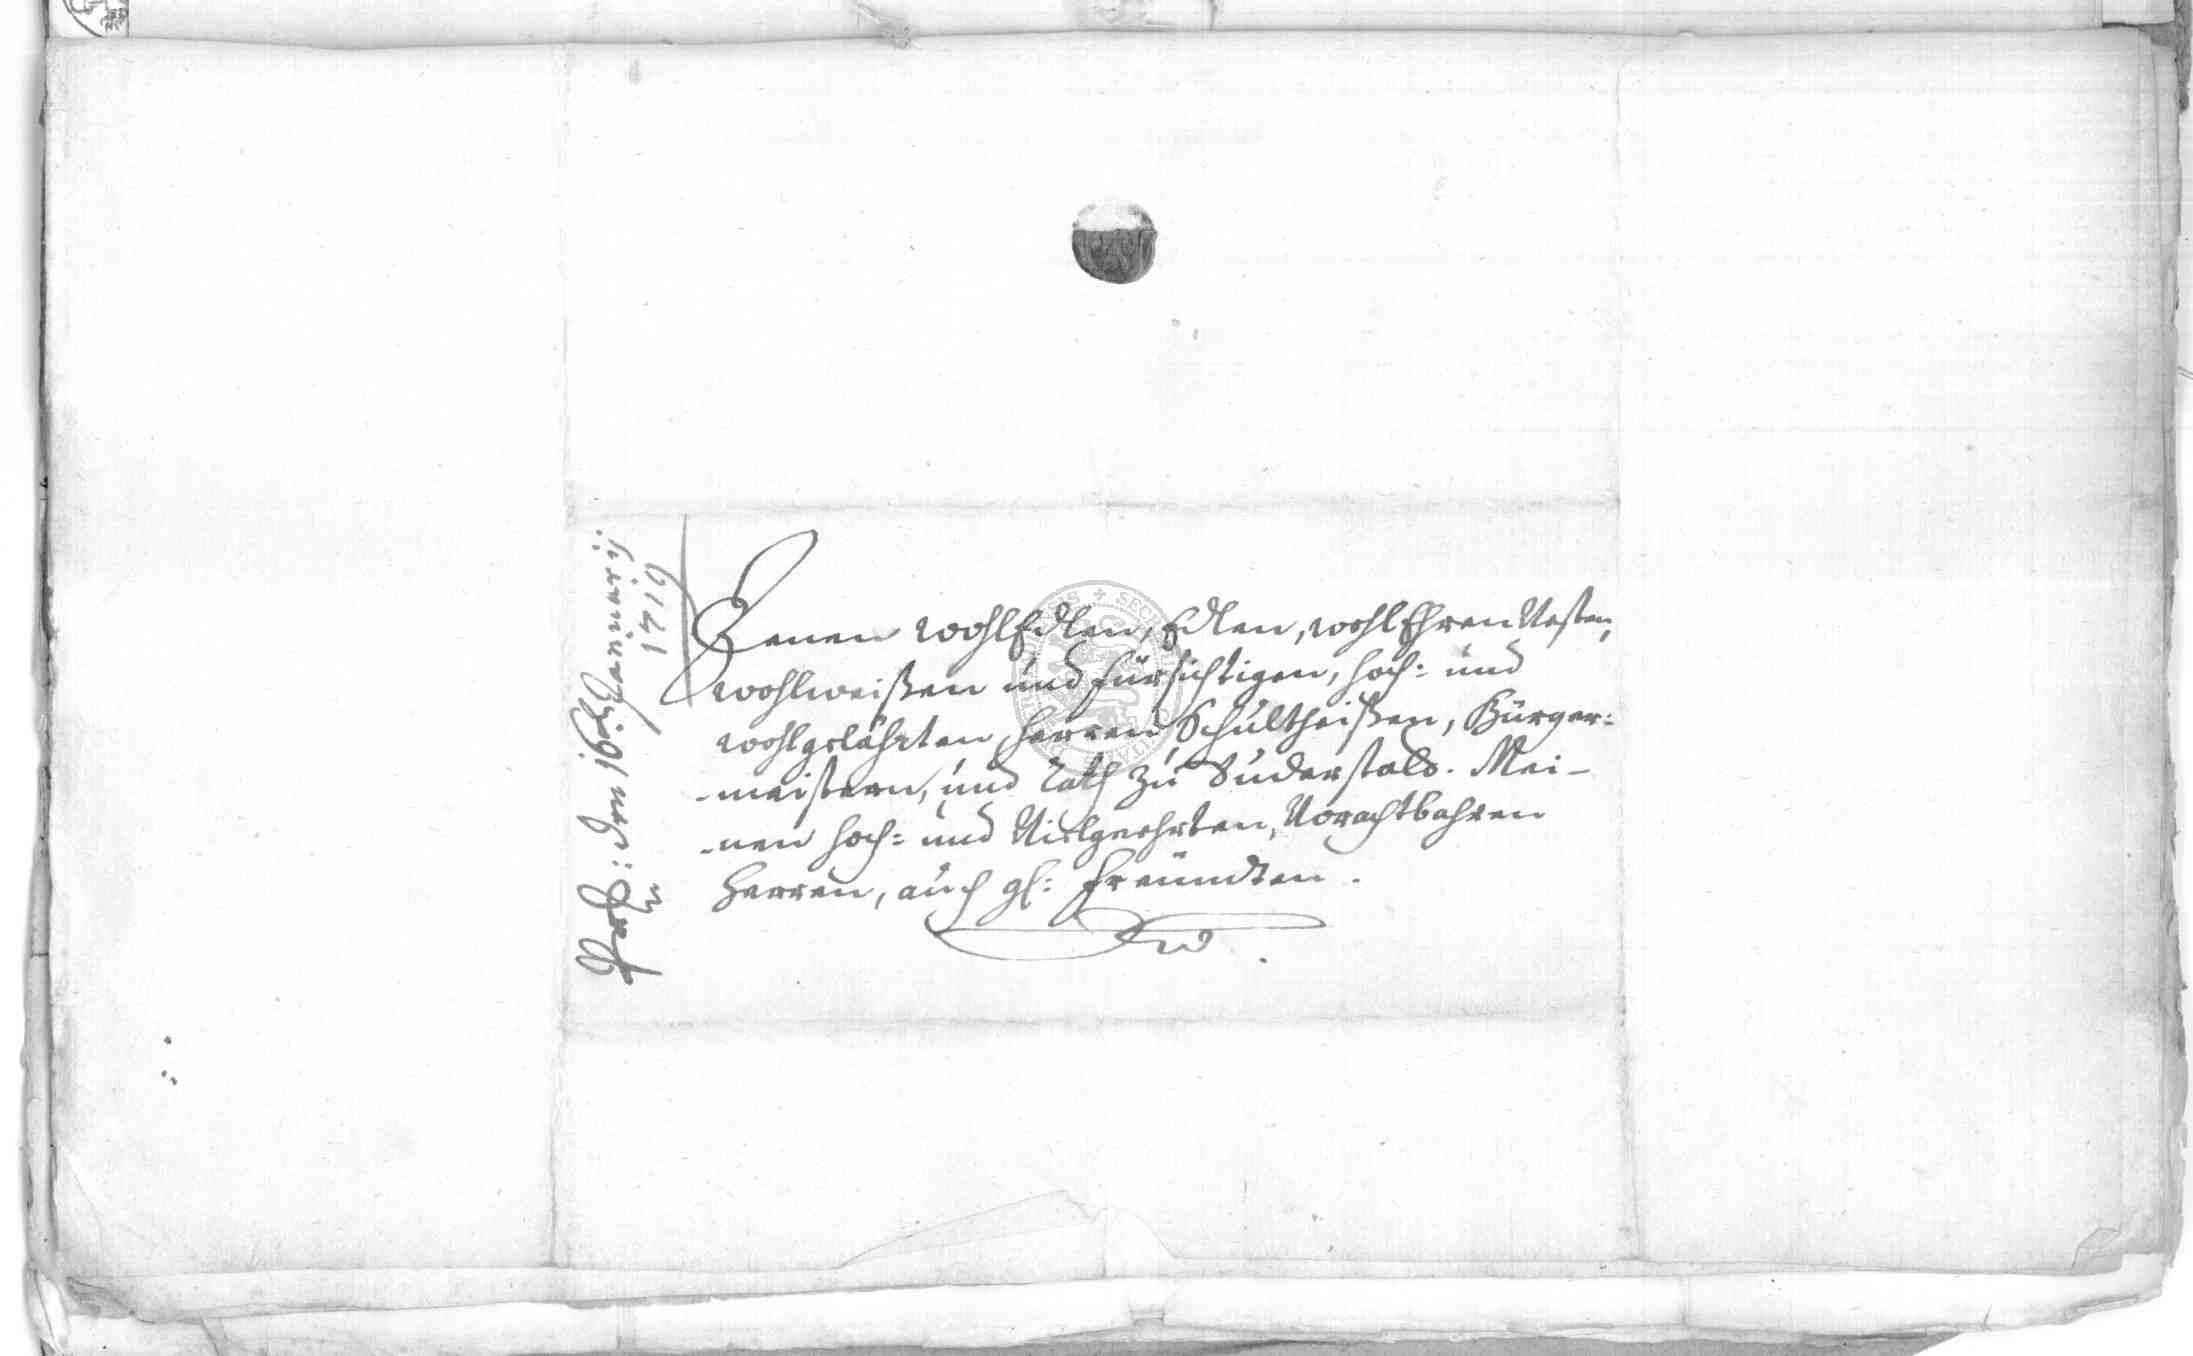 Præs: den 16t. Januarij
1719
Denen WohlEdlen, Edlen, wohlEhrenVesten,
wohlweißen und fürsichtigen, hoch: und
wohlgelährten Herren Schultheißen, Bürger:
-meistern, und Rath zu Suderstatt. Mei-
-nen hoch: und Vielgeehrten, Vorachtbahren
Herren, auch gh: Freündten.